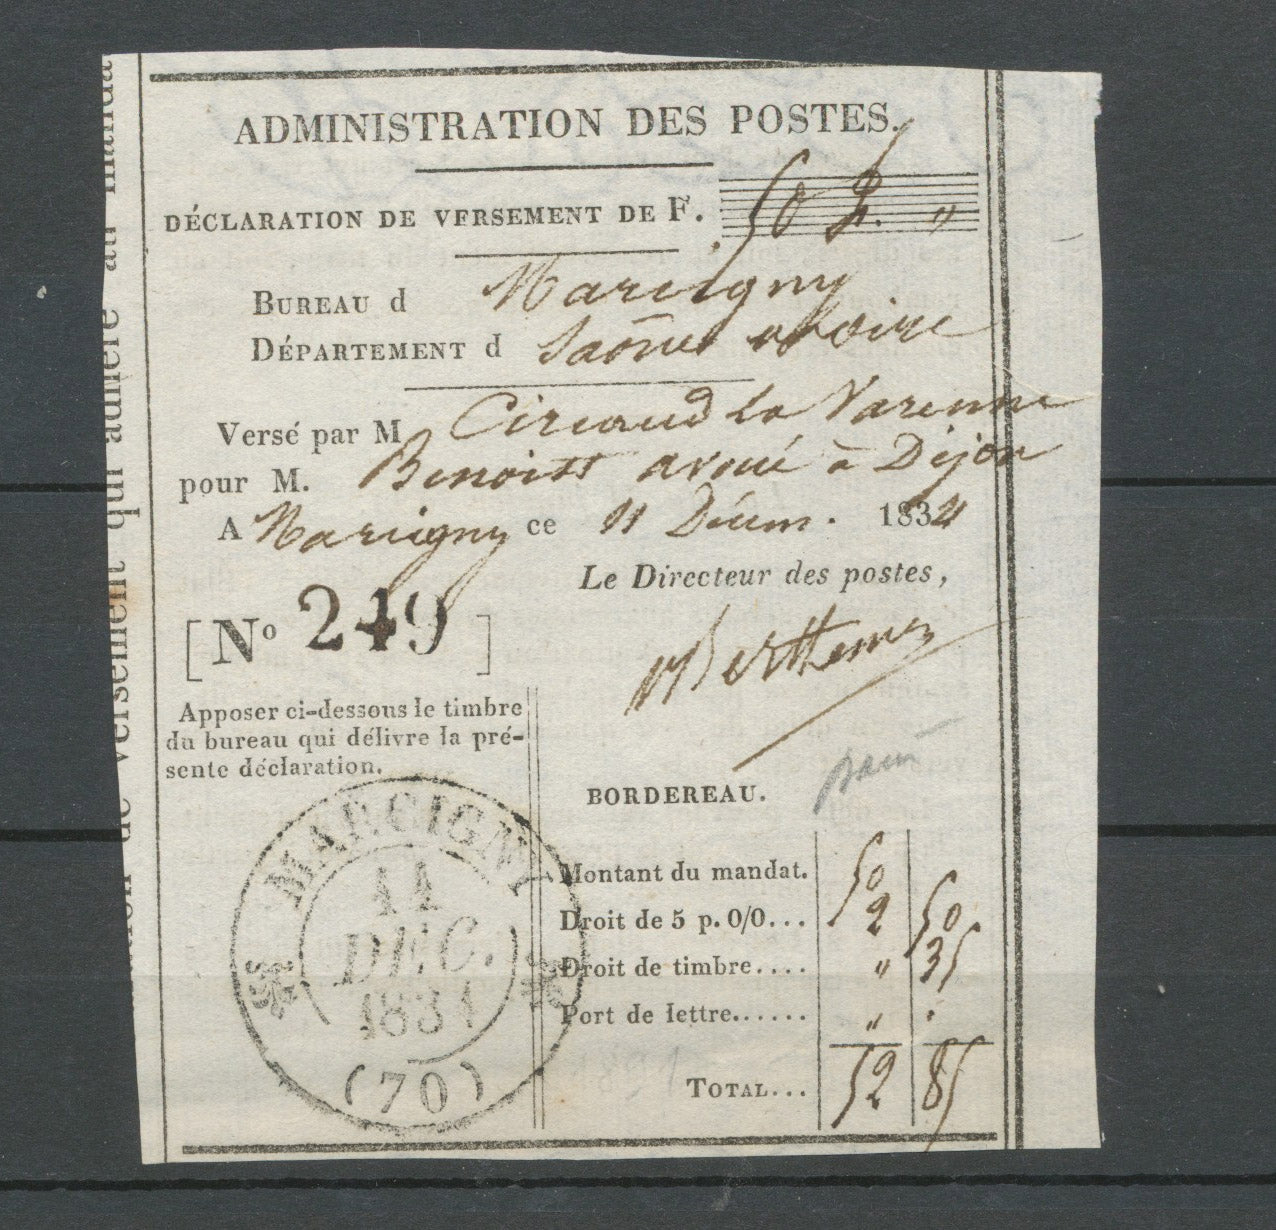 ADMINISTRATION DES POSTES.
DÉCLARATION DE VERSEMENT DE F. 50 f. "
BUREAU d Marcigny
DÉPARTEMENT d Saône et Loire
Versé par M Circaud La Varenne
pour M. Benoist avoué à Dijon
A Marcigny ce 11 Décem. 1831
Le Directeur des postes,
[No 249]
Berthemez
Apposer ci-dessous le timbre
du bureau qui délivre la pré-
sente déclaration.
BORDEREAU.
MARCIGNY
11
DEC.
1831
(70)
Montant du mandat. 50
Droit de 5 p. 0/0... 2 50
Droit de timbre.... " 35
Port de lettre...... "
TOTAL... 52 85
versement qui adhère au manda